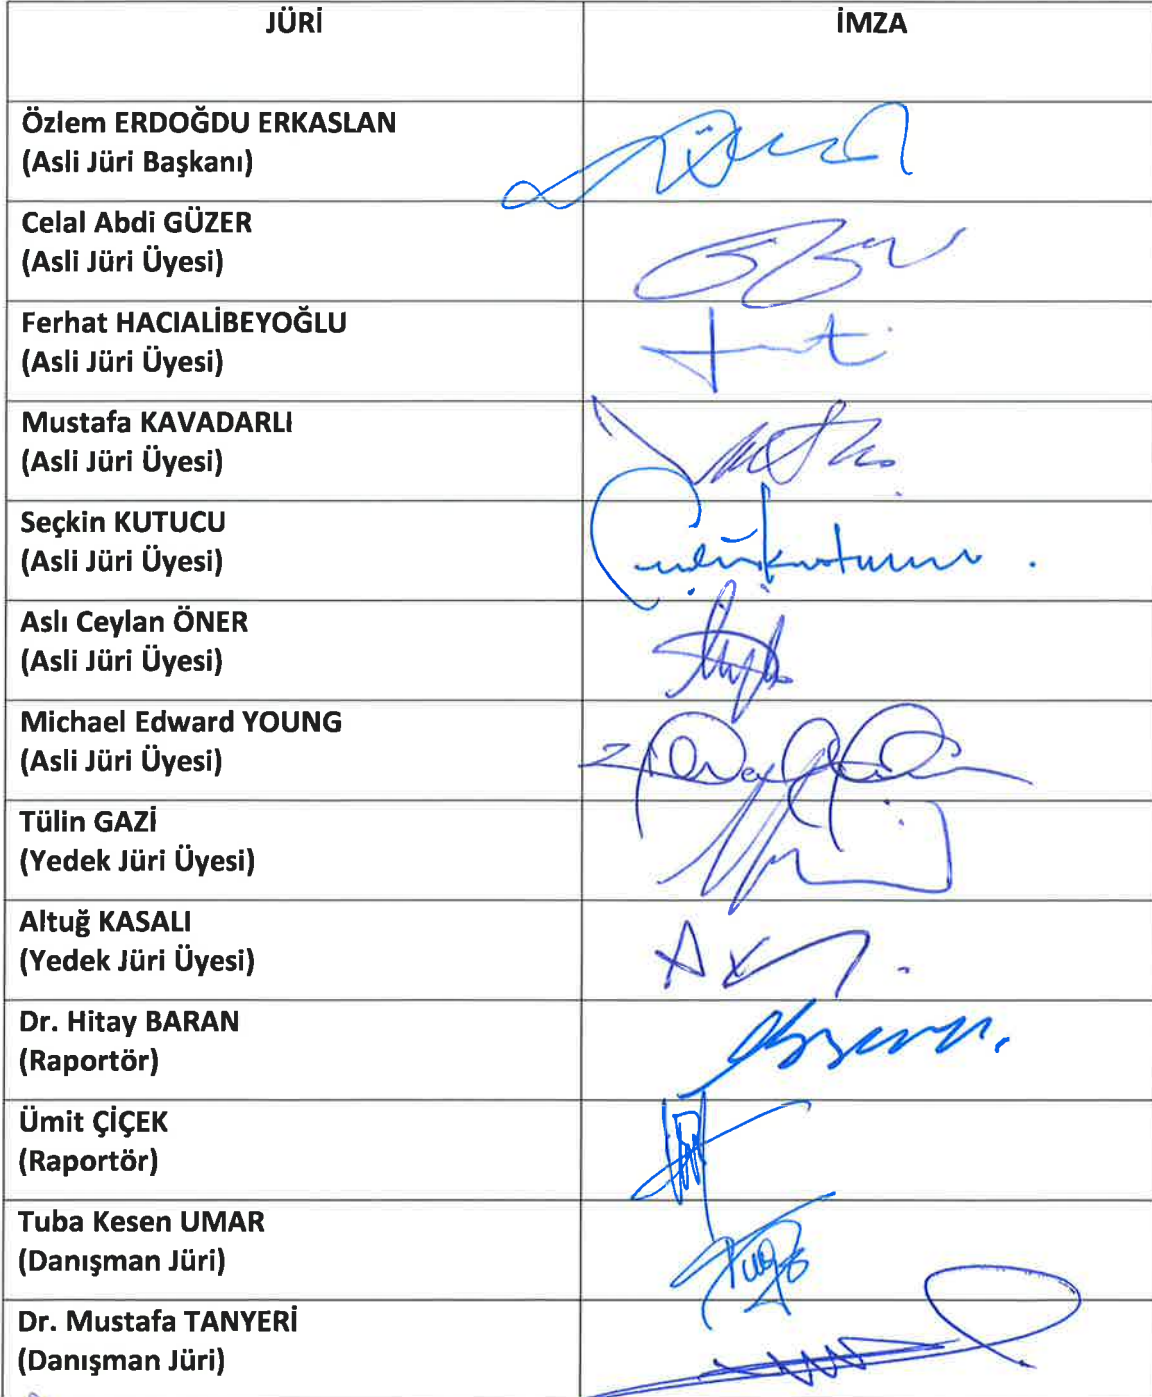 JÜRİ İMZA
Özlem ERDOĞDU ERKASLAN
(Asli Jüri Başkanı)
Celal Abdi GÜZER
(Asli Jüri Üyesi)
Ferhat HACIALİBEYOĞLU
(Asli Jüri Üyesi)
Mustafa KAVADARLI
(Asli Jüri Üyesi)
Seçkin KUTUCU
(Asli Jüri Üyesi)
Aslı Ceylan ÖNER
(Asli Jüri Üyesi)
Michael Edward YOUNG
(Asli Jüri Üyesi)
Tülin GAZİ
(Yedek Jüri Üyesi)
Altuğ KASALI
(Yedek Jüri Üyesi)
Dr. Hitay BARAN
(Raportör)
Ümit ÇİÇEK
(Raportör)
Tuba Kesen UMAR
(Danışman Jüri)
Dr. Mustafa TANYERİ
(Danışman Jüri)